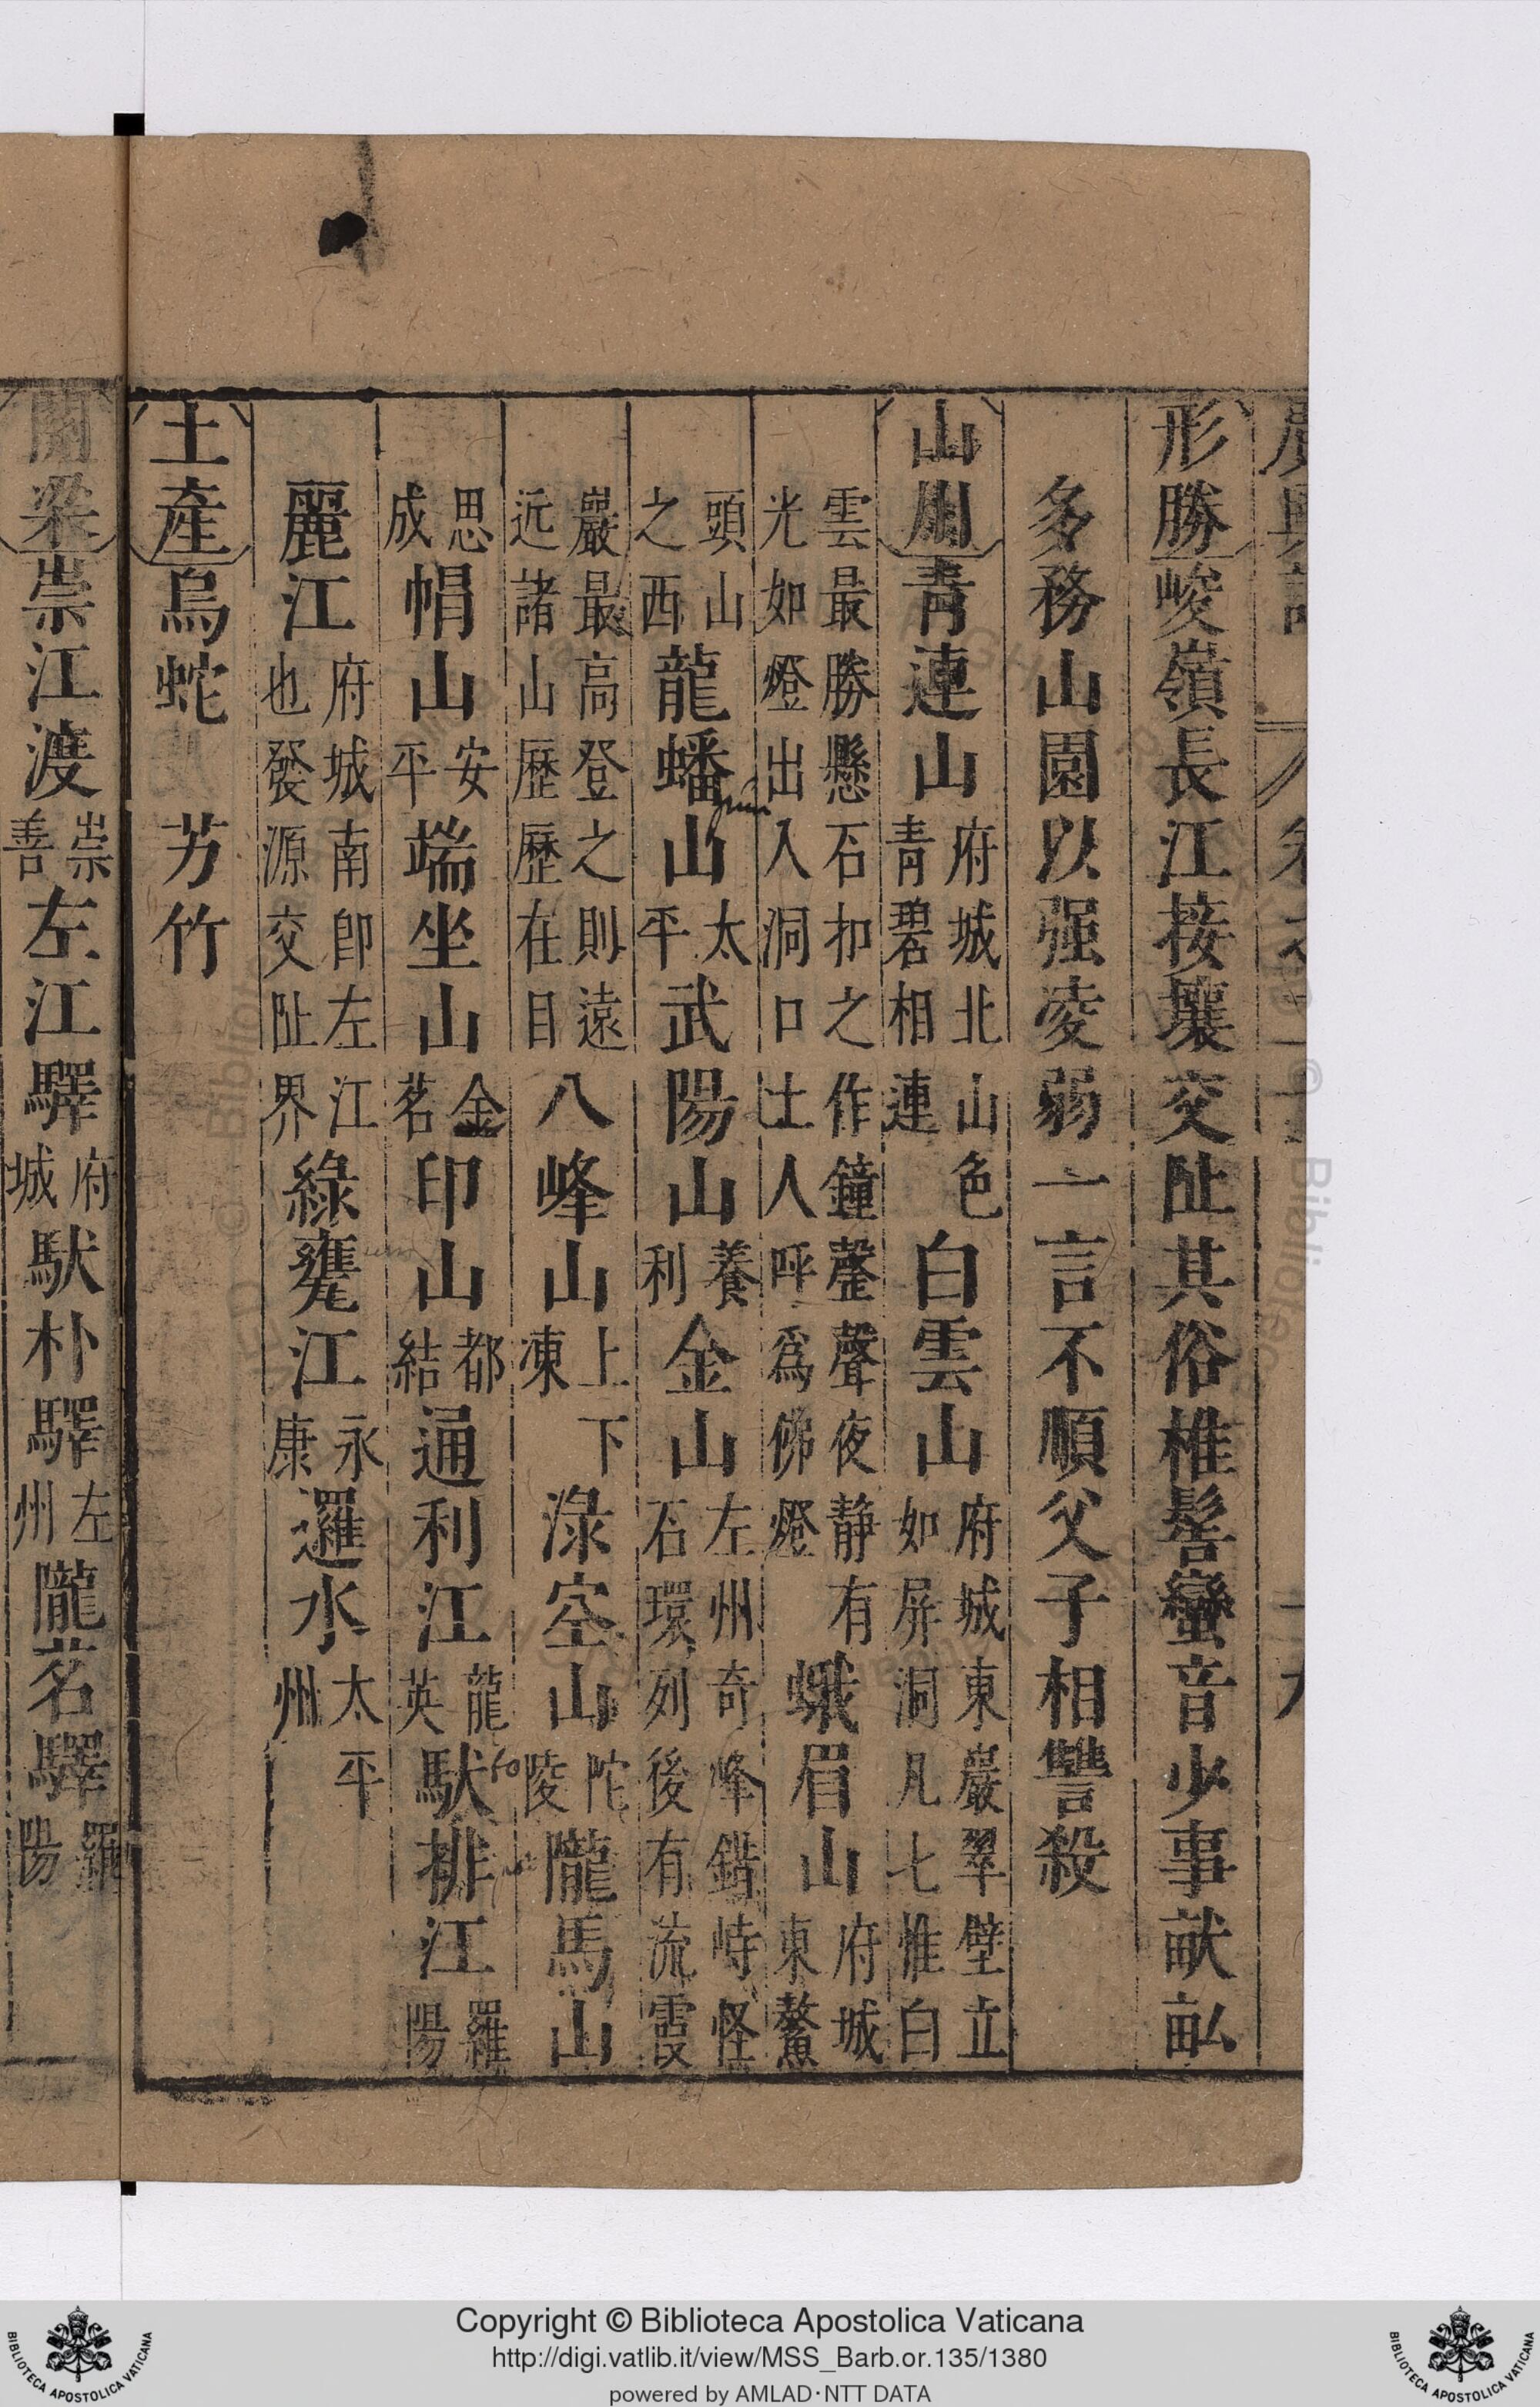 形勝峻嶺長江接壤交阯其俗椎髻蠻音少事畎畝
多務山園以强凌弱一言不順父子相讐殺
山川青連山府城北山色青碧相連白雲山府城東巖翠壁立如屏洞凡七惟白
雲最勝懸石扣之作鐘磬聲夜静有光如燈出入洞口土人呼爲佛燈蛾眉山府城東鰲
頭山之西龍蟠山太平武陽山養利金山左州奇峰錯峙怪石環列後有流霞
巖最高登之則遠近諸山歷歷在目八峰山上下凍淥空山陀陵隴馬山
思成帽山安平端坐山金茗印山都結通利江龍英馱排江羅陽
麗江府城南卽左江也發源交阯界綠甕江永康邏水太平州
土產烏蛇 芳竹
關梁崇江渡崇善左江驛府城馱朴驛左州隴茗驛羅陽
Copyright © Biblioteca Apostolica Vaticana
http://digi.vatlib.it/view/MSS_Barb.or.135/1380
powered by AMLAD·NTT DATA
BIBLIOTECA APOSTOLICA VATICANA
BIBLIOTECA APOSTOLICA VATICANA